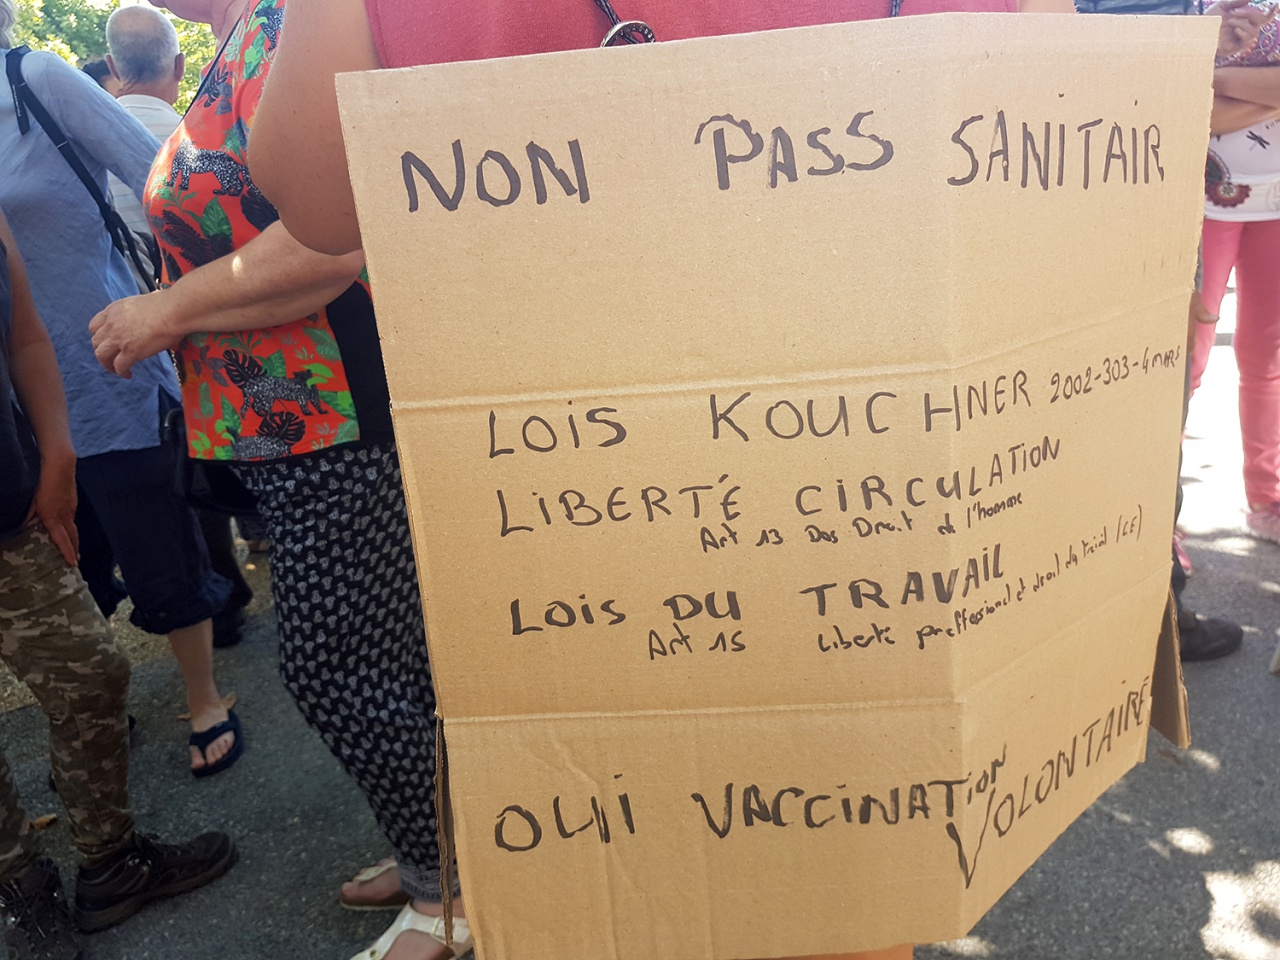 NON PASS SANITAIR
LOIS KOUCHNER 2002-303-4 MARS
LIBERTÉ CIRCULATION
Art 13 Des Droit de l'homme
LOIS DU TRAVAIL
Art 15 Liberté proffessionel et droit du travail (CE)
OUI VACCINATION VOLONTAIRE